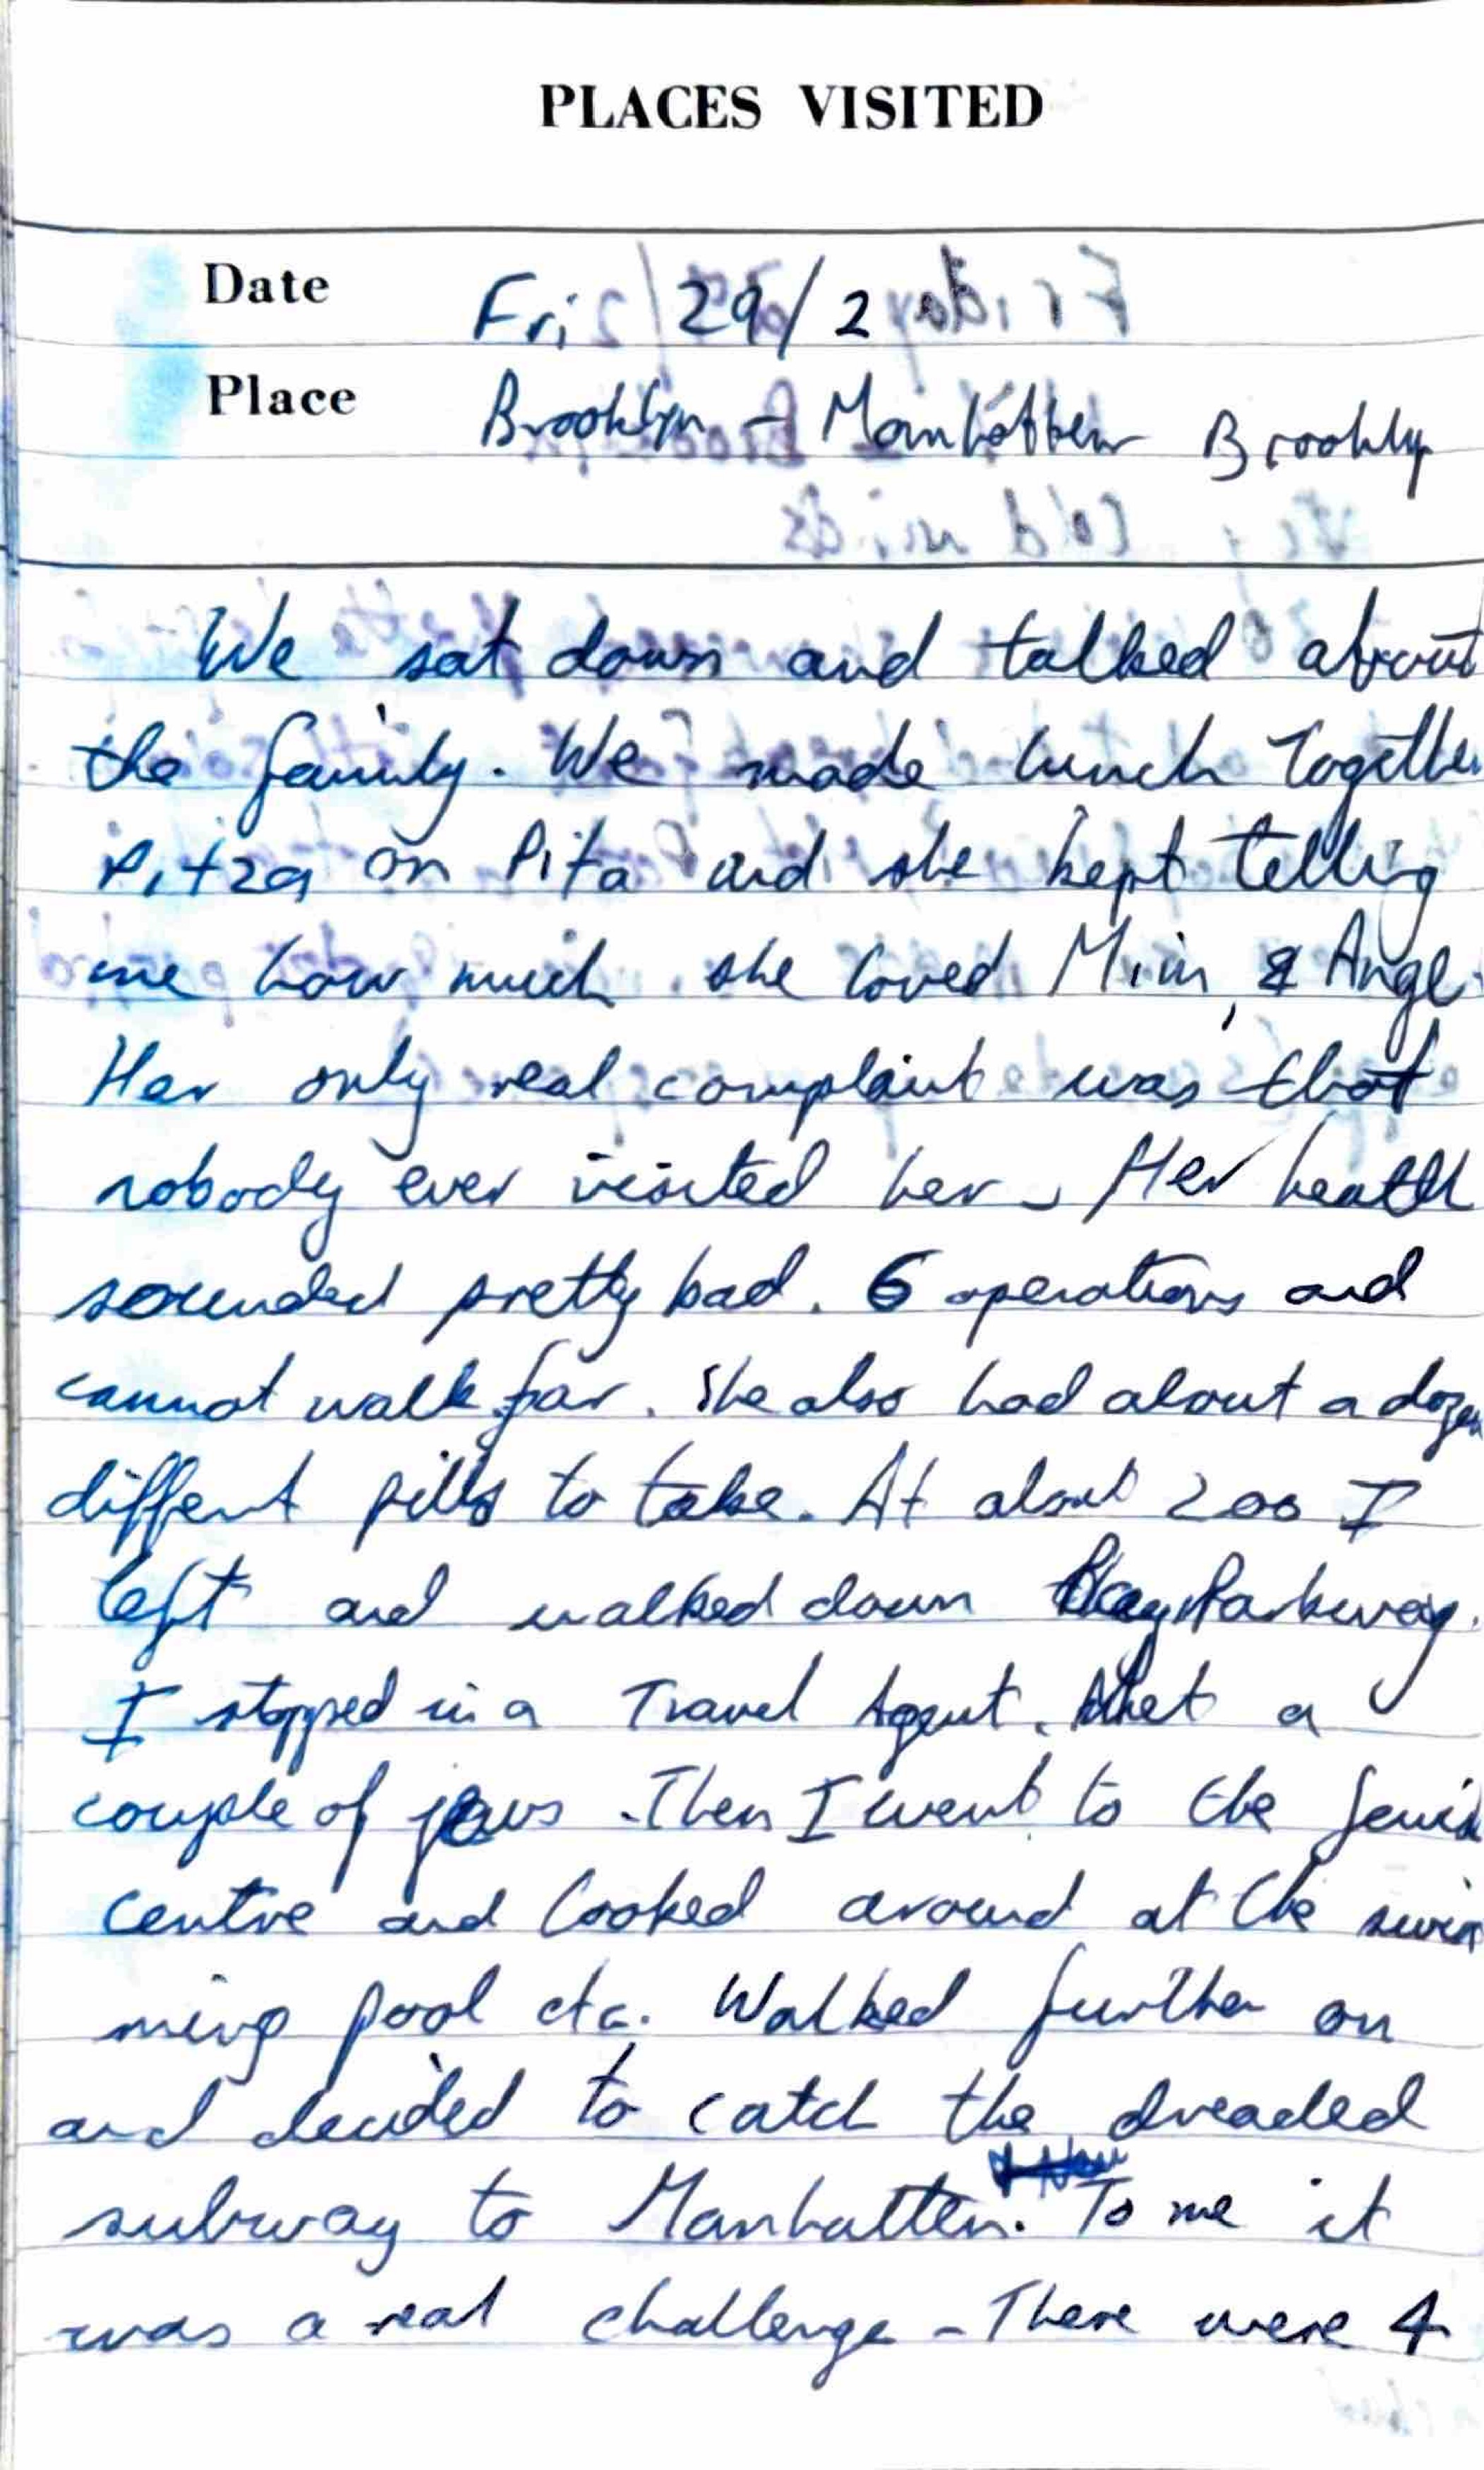 PLACES VISITED
Date Fri 29/2
Place Brooklyn - Manhatten Brooklyn
We sat down and talked about
the family. We made lunch together
Pitza on Pita and she kept telling
me how much she loved Mim, & Ange.
Her only real complaint was that
nobody ever visited her. Her health
sounded pretty bad. 6 operations and
cannot walk far. She also had about a dozen
diffent pills to take. At about 200 I
left and walked down Bay Parkway.
I stopped in a Travel Agent. Met a
couple of jews. Then I went to the Jewish
centre and looked around at the swim
ming pool etc. Walked further on
and decided to catch the dreaded
subway to Manhatten. To me it
was a real challenge - There were 4